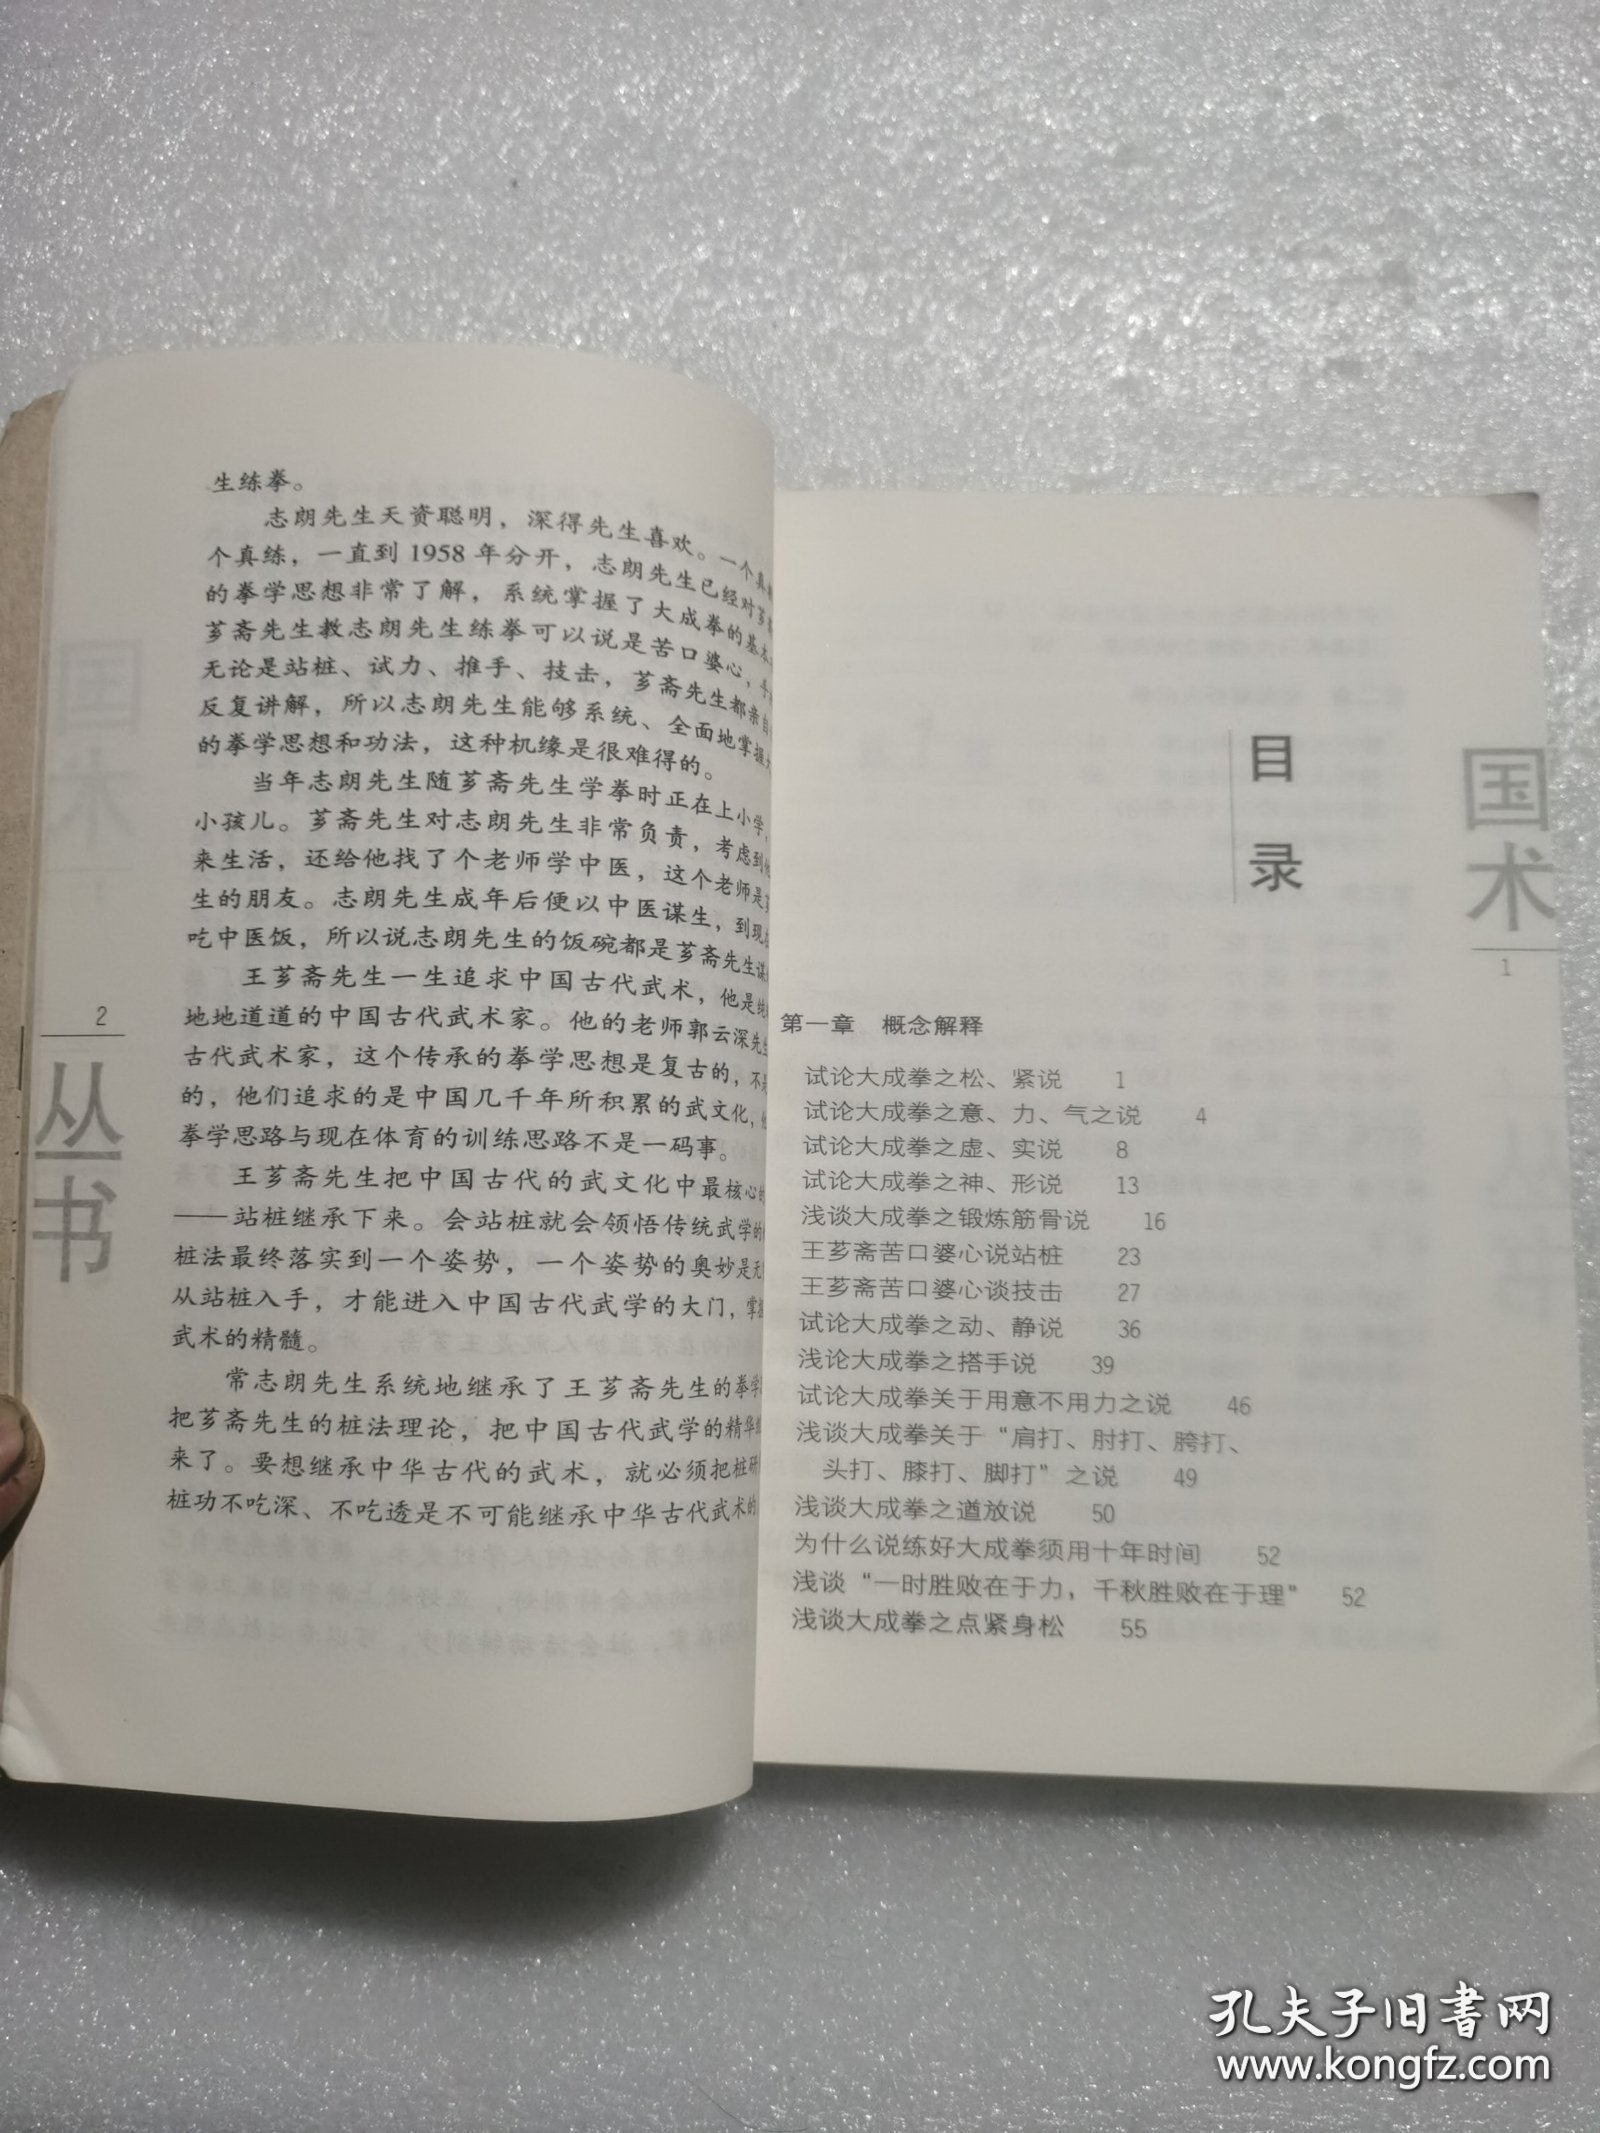 生练拳。
志朗先生天资聪明，深得先生喜欢。一个真
个真练，一直到1958年分开，志朗先生已经对芗
的拳学思想非常了解，系统掌握了大成拳的基本
芗斋先生教志朗先生练拳可以说是苦口婆心，手
无论是站桩、试力、推手、技击，芗斋先生都亲自
反复讲解，所以志朗先生能够系统、全面地掌握大
的拳学思想和功法，这种机缘是很难得的。
当年志朗先生随芗斋先生学拳时正在上小学，
小孩儿。芗斋先生对志朗先生非常负责，考虑到他
来生活，还给他找了个老师学中医，这个老师是
生的朋友。志朗先生成年后便以中医谋生，到现
吃中医饭，所以说志朗先生的饭碗都是芗斋先生谋
王芗斋先生一生追求中国古代武术，他是纯
地地道道的中国古代武术家。他的老师郭云深先生
古代武术家，这个传承的拳学思想是复古的，不是
的，他们追求的是中国几千年所积累的武文化，他
拳学思路与现在体育的训练思路不是一码事。
王芗斋先生把中国古代的武文化中最核心的
——站桩继承下来。会站桩就会领悟传统武学的
桩法最终落实到一个姿势，一个姿势的奥妙是无
从站桩入手，才能进入中国古代武学的大门，掌握
武术的精髓。
常志朗先生系统地继承了王芗斋先生的拳学
把芗斋先生的桩法理论，把中国古代武学的精华继
来了。要想继承中华古代的武术，就必须把桩研
桩功不吃深、不吃透是不可能继承中华古代武术的
2
丛书
国术
1
目录
第一章 概念解释
试论大成拳之松、紧说 1
试论大成拳之意、力、气之说 4
试论大成拳之虚、实说 8
试论大成拳之神、形说 13
浅谈大成拳之锻炼筋骨说 16
王芗斋苦口婆心说站桩 23
王芗斋苦口婆心谈技击 27
试论大成拳之动、静说 36
浅论大成拳之搭手说 39
试论大成拳关于用意不用力之说 46
浅谈大成拳关于“肩打、肘打、胯打、
头打、膝打、脚打”之说 49
浅谈大成拳之遒放说 50
为什么说练好大成拳须用十年时间 52
浅谈“一时胜败在于力，千秋胜败在于理” 52
浅谈大成拳之点紧身松 55
孔夫子旧书网
www.kongfz.com